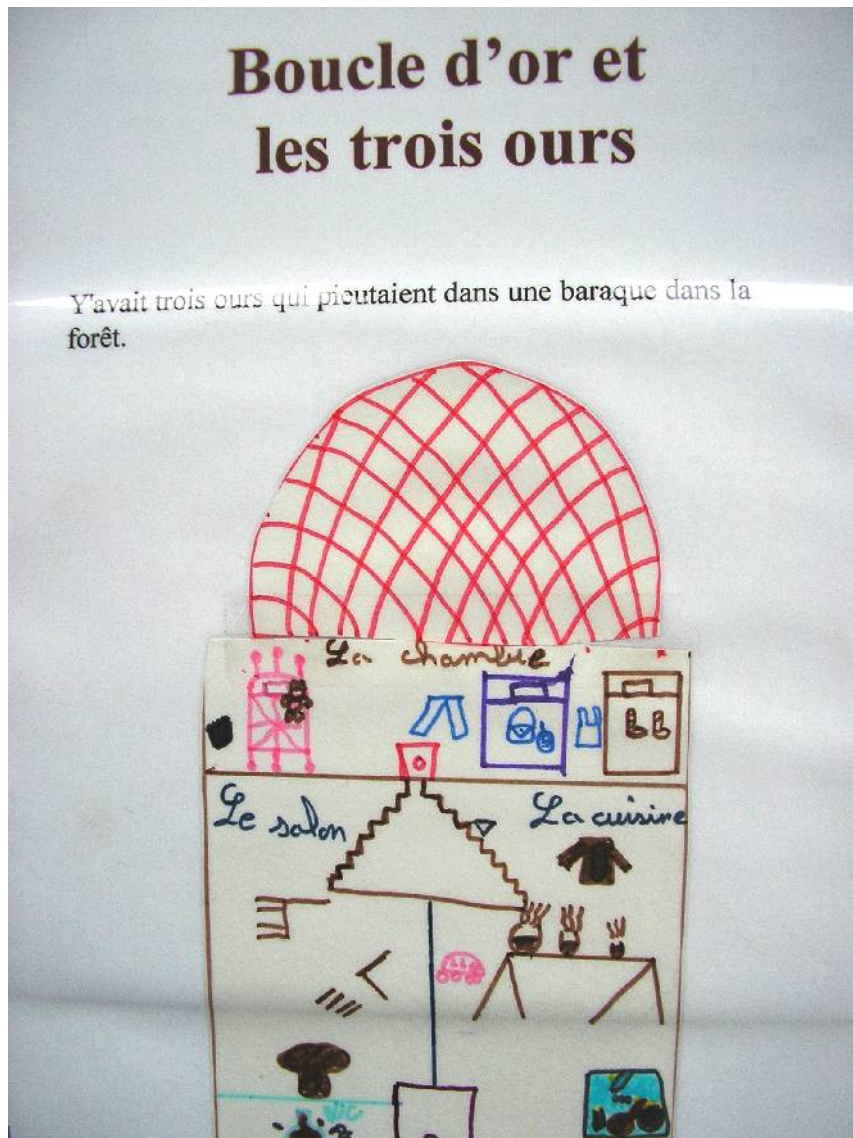 Boucle d'or et
les trois ours
Y'avait trois ours qui pieutaient dans une baraque dans la
forêt.
La chambre
Le salon
La cuisine
WC